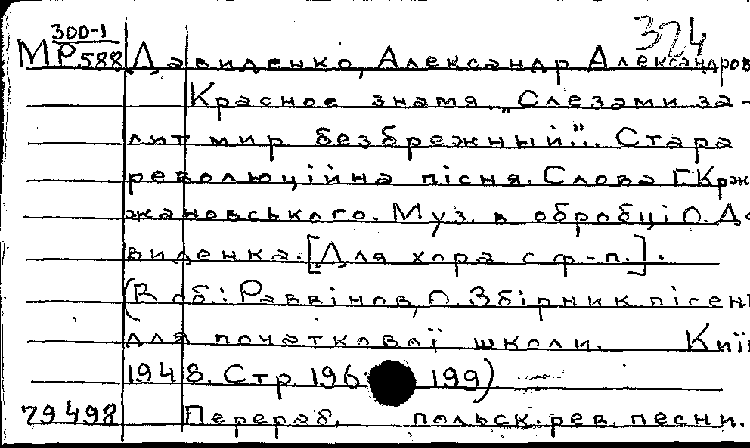 300-1 324
МР588 Давиденко, Александр Александров
Красное знамя. „Слезами за-
лит мир безбрежный". Стара
революційна пісня. Слова Г. Кржи
жановського. Муз. в обробці О. Да
виденка. [Для хора с ф-п.].
(В зб.: Раввінов, О. Збірник пісень
для початкової школи. Київ
1948. Стр. 196 199)
79498 Перераб. польск. рев. песни.